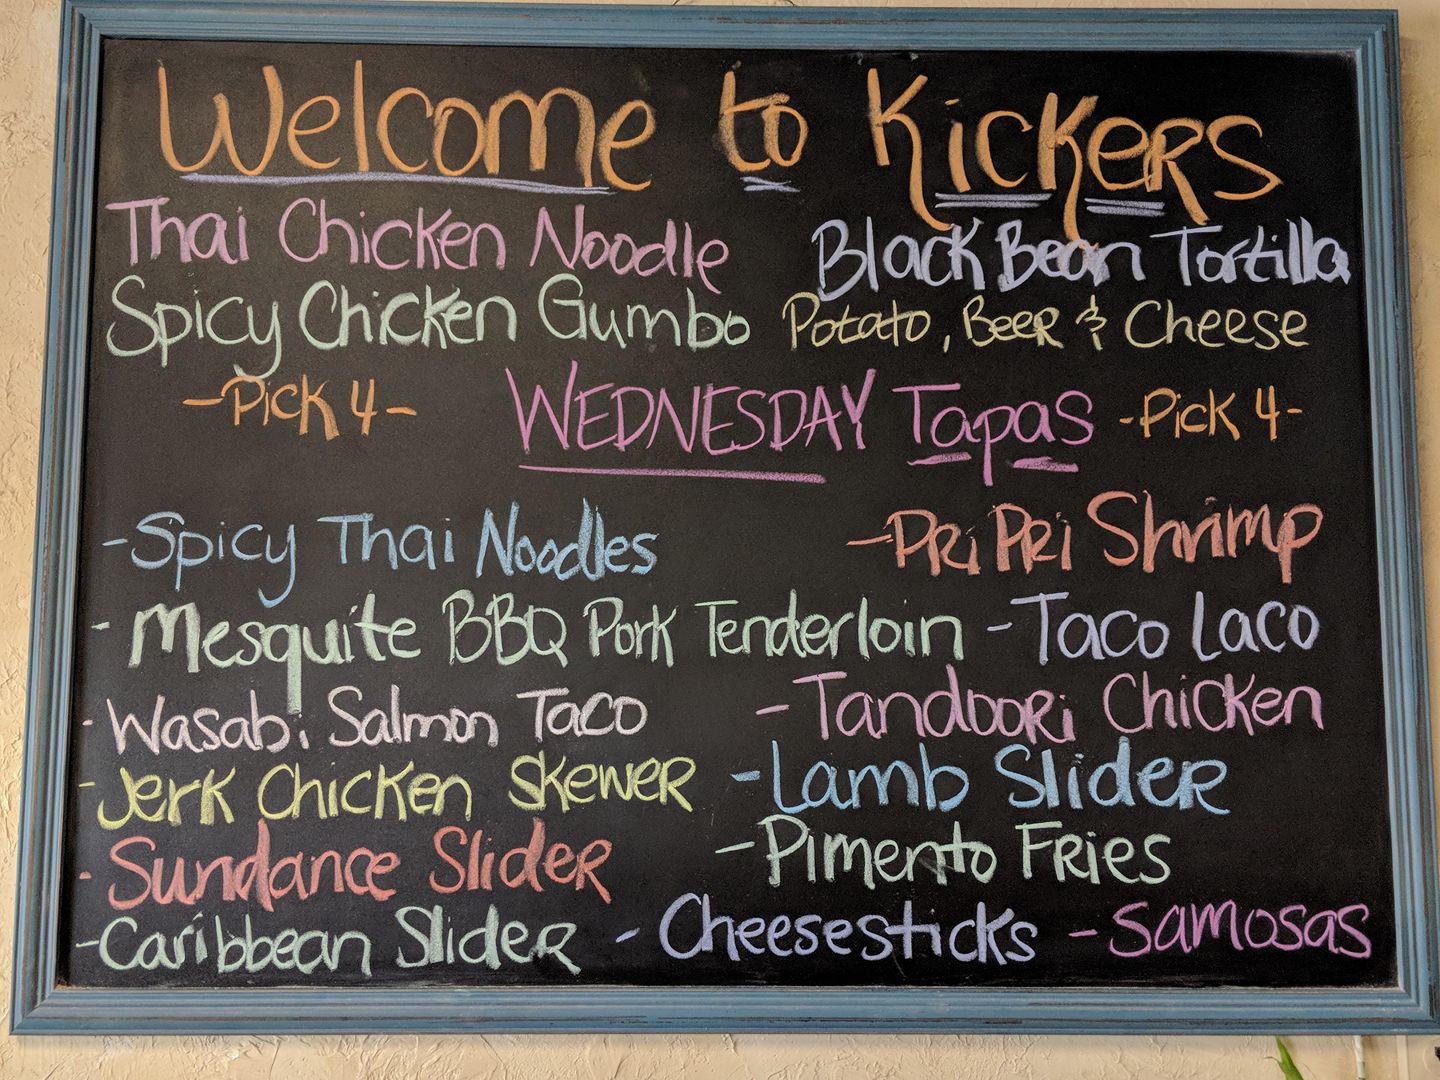 Welcome to Kickers
Thai Chicken Noodle Black Bean Tortilla
Spicy Chicken Gumbo Potato, Beer & Cheese
-Pick 4- WEDNESDAY Tapas -Pick 4-
-Spicy Thai Noodles -PRi PRi Shrimp
-Mesquite BBQ Pork Tenderloin -Taco Laco
-Wasabi Salmon Taco -Tandoori Chicken
-Jerk Chicken Skewer -Lamb Slider
-Sundance Slider -Pimento Fries
-Caribbean Slider -Cheesesticks -Samosas